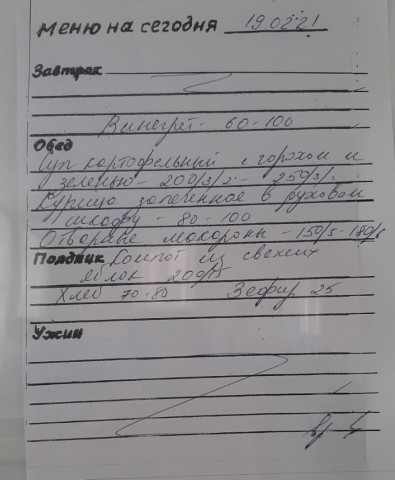 Меню на сегодня 19.02.21
Завтрак
Винегрет - 60-100
Обед
Суп картофельный с горохом и
зеленью - 200/3/2 - 250/3/
Курица запеченное в духовом
шкафу - 80 - 100
Отворные макороны - 150/5 - 180/6
Полдник Компот из свежих
яблок 200/15
Хлеб 70-80 Зефир 25
Ужин